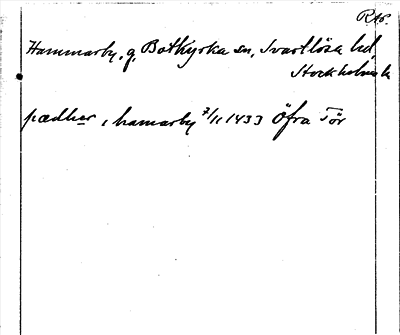 Rap.
Hammarby, g, Botkyrka sn, Svartlösa hd,
Stockholms l.
pædher, hamarby 7/11 1433 Öfra Tör